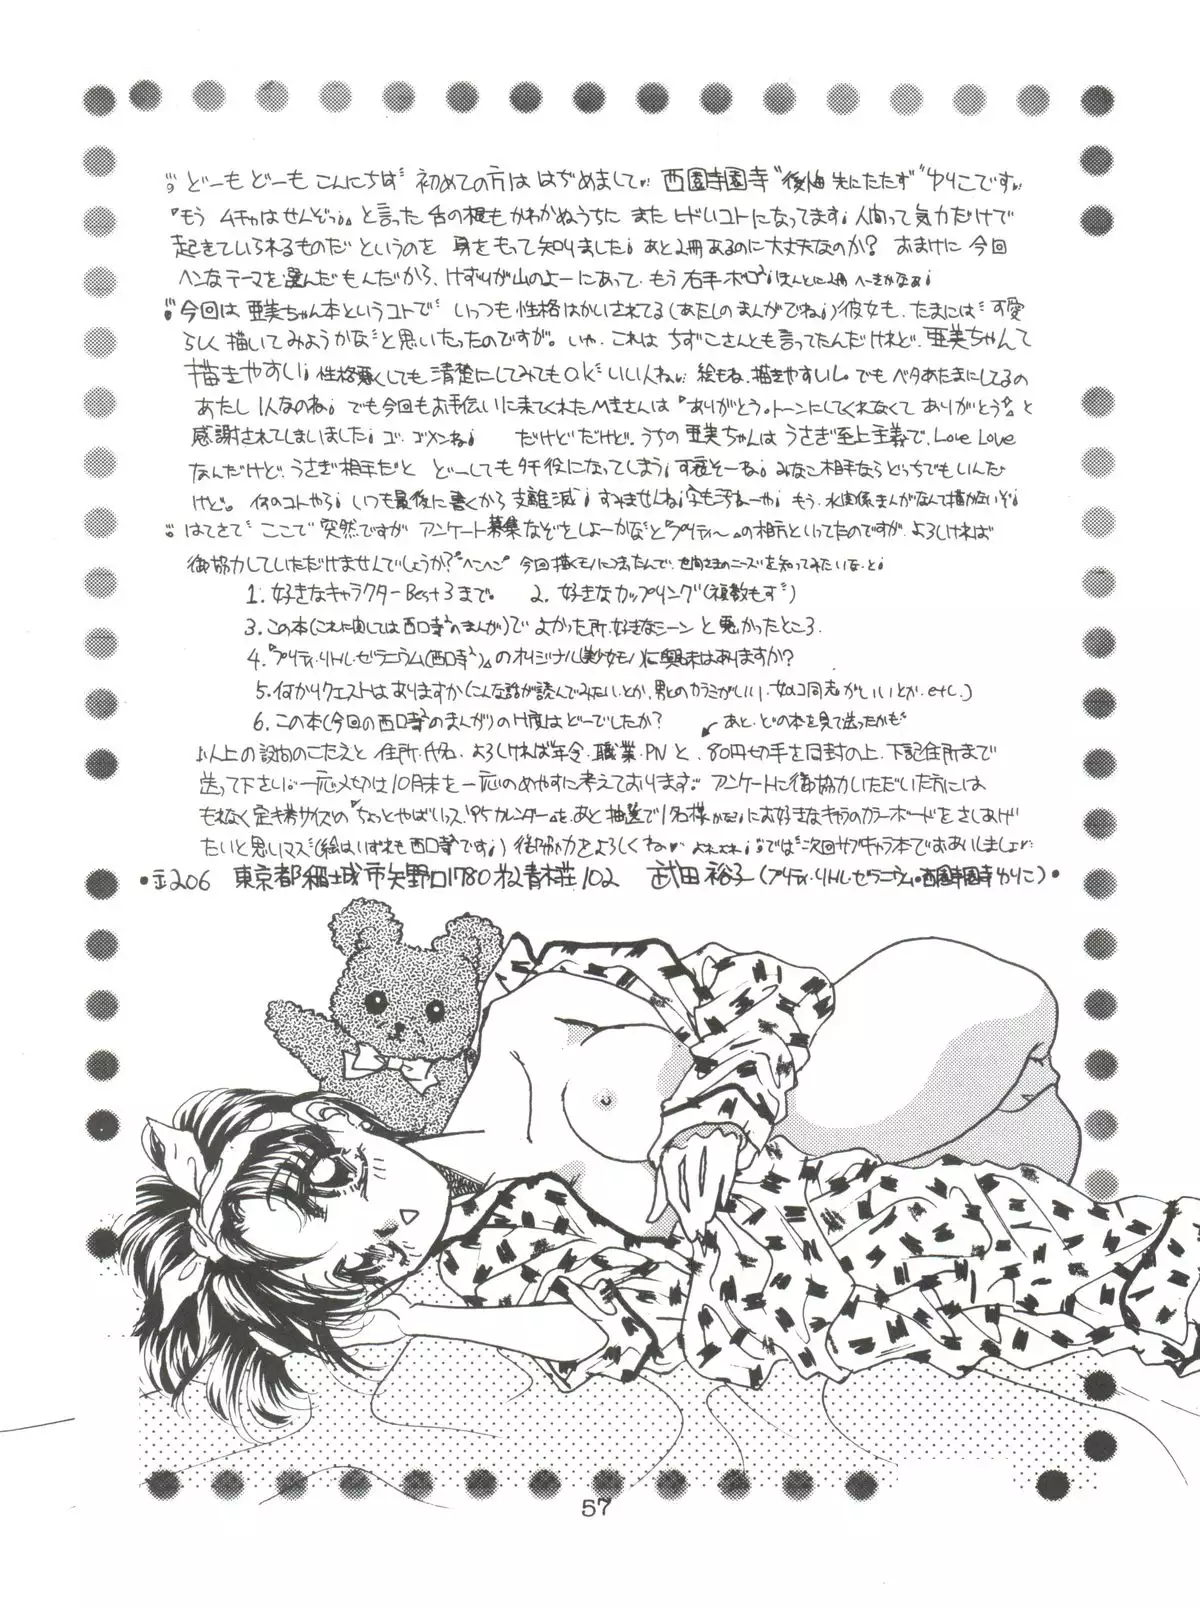 どーもどーもこんにちは 初めての方ははぢめまして 西園寺園寺"後悔先にたたず"ゆりこです
『もうムチャはせんぞっ!』と言った舌の根もかわかぬうちに またヒドいコトになってます! 人間って気力だけで
起きていられるものだというのを 身をもって知りました! あと2冊あるのに大丈夫なのか? おまけに今回
ヘンなテーマを選んだもんだから、けずりが山のよーにあって、もう右手ボロ²!
今回は亜美ちゃん本というコトで いっつも性格はかいされてる(あたしのまんがでね!)彼女も、たまには可愛
らしく描いてみようかなと思いたったのですが。いや、これはちずこさんとも言ってたんだけれど、亜美ちゃんて
描きやすい! 性格悪くしても、清楚にしてみてもO.K いい人ねぃ 絵もね、描きやすいし。でもベタあたまにしてるの
あたし1人なのね! でも今回もお手伝いに来てくれたM生さんは『ありがとう。トーンにしてくれなくてありがとう』と
感謝されてしまいました! ゴ、ゴメンね! だけどだけど、うちの亜美ちゃんはうさぎ至上主義で、Love Love
なんだけど、うさぎ相手だと どーしてもタチ役になってしまう! みなこ相手ならどっちでもいんだ
けど。何のコトやら! いつも最後に書くから支離滅! すみませんね! 字も汚ねーや! もう、水関係まんがなんて描かないぞ!
はてさて ここで突然ですが アンケート募集なぞをしよーかなと『プリティ~』の相方といってたのですが、よろしければ
御協力していただけませんでしょうか? ぺこぺこ
1. 好きなキャラクターBest 3まで。 2. 好きなカップリング(複数も可)
3. この本(これに関しては西口寺²のまんが)で よかった所、好きなシーンと悪かったところ。
4. 『プリティ・リトル・ゼラニウム(西口寺²)』のオリジナル(美少女モノ)に興味はありますか?
5. 何かリクエストはありますか(こんな話が読んでみたいとか、男とのカラミがいい、女のコ同志がいいとか、etc.)
6. この本(今回の西口寺²のまんが)のH度はどーでしたか? あと、どの本を見て送ったかも
以上の設問のこたえと 住所、氏名、よろしければ年令・職業・PNと、80円切手を同封の上、下記住所まで
送って下さい。一応〆切は10月末を一応のめやすに考えております。アンケートに御協力いただいた方には
もれなく定キ寿サイズの『ちょっとやばいっス'95カレンダー』を、あと抽選で1名様かなにお好きなキャラのカラーボードをさしあげ
たいと思いマス(絵はいずれも西口寺²です!) 御協力をよろしくねぃ では次回サブキャラ本でおあいしましょ
〒206 東京都稲城市矢野口1780 松青荘102 武田裕子(プリティ・リトル・ゼラニウム・西園寺園寺ゆりこ)
57